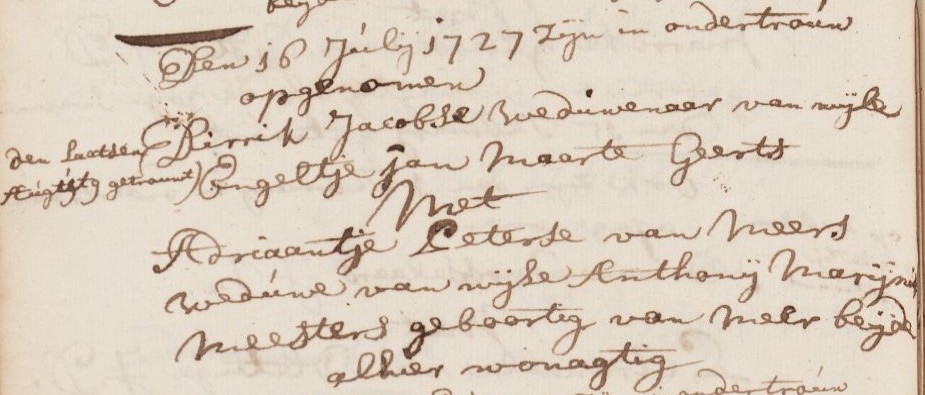 Den 16 Júlÿ 1727 zÿn in ondertroún
opgenomen
Dirrik Jacobse weduwenaar van wijle
Engeltje Jan Maerte Geerts
den laatsen
Aúgústÿ getrouwt
Met
Adriaantje Peterse van Meers
wedúwe van wijle Anthonÿ Marÿnis
Meesters geboortig van Meer beÿde
alhier wonagtig
ondertroún